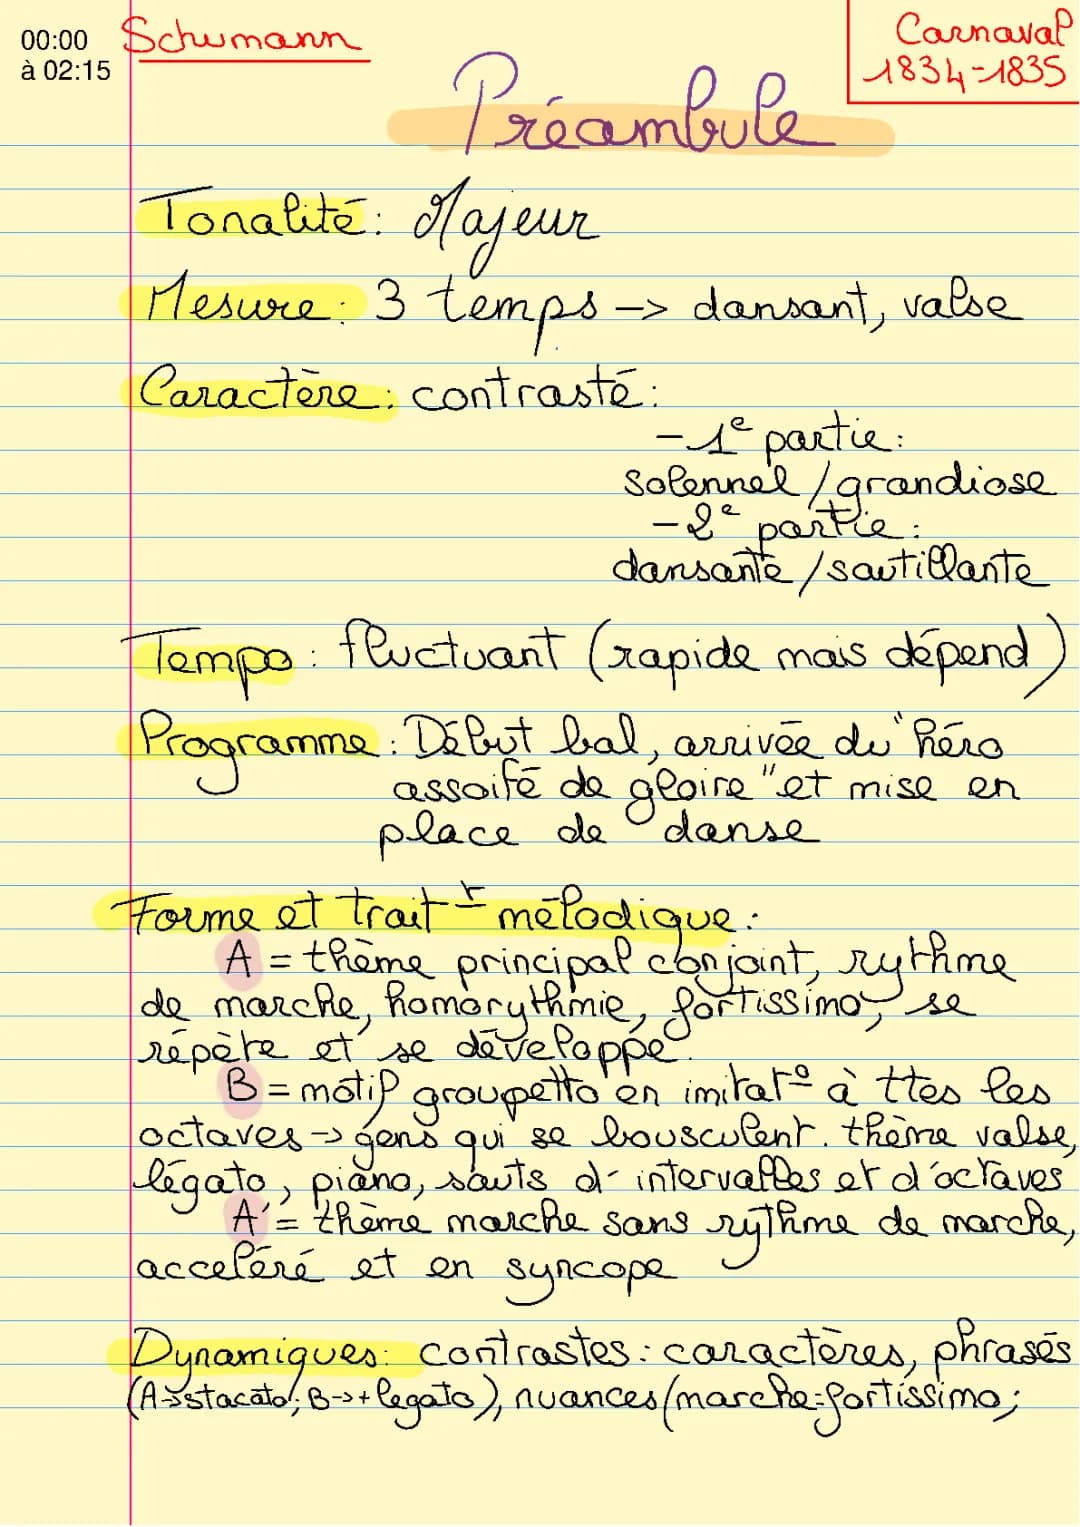 00:00
à 02:15
Schumann
Carnaval
1834-1835
Préambule
Tonalité : Majeur
Mesure : 3 temps -> dansant, valse
Caractère : contrasté :
- 1e partie :
solennel / grandiose
- 2e partie :
dansante / sautillante
Tempo : fluctuant (rapide mais dépend)
Programme : Début bal, arrivée du "héro
assoifé de gloire" et mise en
place de danse
Forme et traitt mélodique :
A = thème principal conjoint, rythme
de marche, homorythmie, fortissimo, se
répète et se développe.
B = motif groupetto en imitato à ttes les
octaves -> gens qui se bousculent. thème valse,
légato, piano, sauts d'intervalles et d'octaves
A' = thème marche sans rythme de marche,
acceléré et en syncope
Dynamiques : contrastes : caractères, phrasés
(A->stacato ; B->+legato), nuances (marche=fortissimo ;